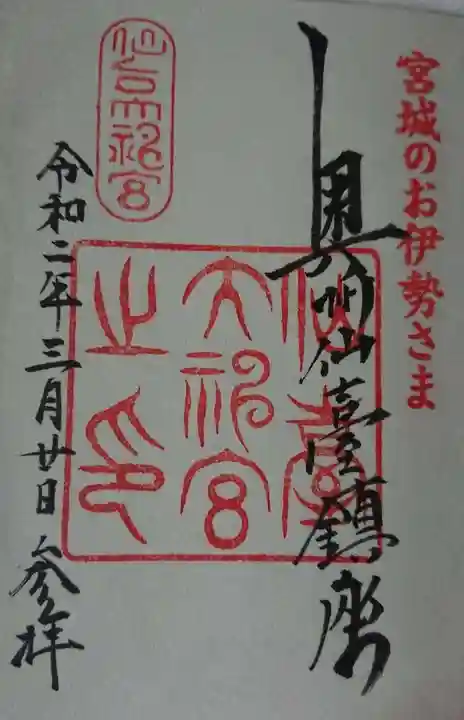 宮城のお伊勢さま
奥州仙臺鎮座
仙臺
大神宮
之印
仙台大神宮
令和二年三月廿日 参拝